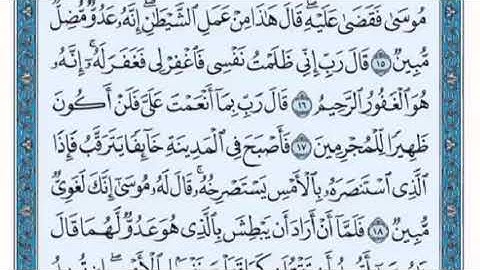 مُوسَىٰ فَقَضَىٰ عَلَيْهِ ۖ قَالَ هَٰذَا مِنْ عَمَلِ ٱلشَّيْطَٰنِ ۖ إِنَّهُۥ عَدُوٌّ مُّضِلٌّ
مُّبِينٌ ١٥ قَالَ رَبِّ إِنِّى ظَلَمْتُ نَفْسِى فَٱغْفِرْ لِى فَغَفَرَ لَهُۥٓ ۚ إِنَّهُۥ
هُوَ ٱلْغَفُورُ ٱلرَّحِيمُ ١٦ قَالَ رَبِّ بِمَآ أَنْعَمْتَ عَلَىَّ فَلَنْ أَكُونَ
ظَهِيرًا لِّلْمُجْرِمِينَ ١٧ فَأَصْبَحَ فِى ٱلْمَدِينَةِ خَآئِفًا يَتَرَقَّبُ فَإِذَا
ٱلَّذِى ٱسْتَنصَرَهُۥ بِٱلْأَمْسِ يَسْتَصْرِخُهُۥ ۚ قَالَ لَهُۥ مُوسَىٰٓ إِنَّكَ لَغَوِىٌّ
مُّبِينٌ ١٨ فَلَمَّآ أَنْ أَرَادَ أَن يَبْطِشَ بِٱلَّذِى هُوَ عَدُوٌّ لَّهُمَا قَالَ